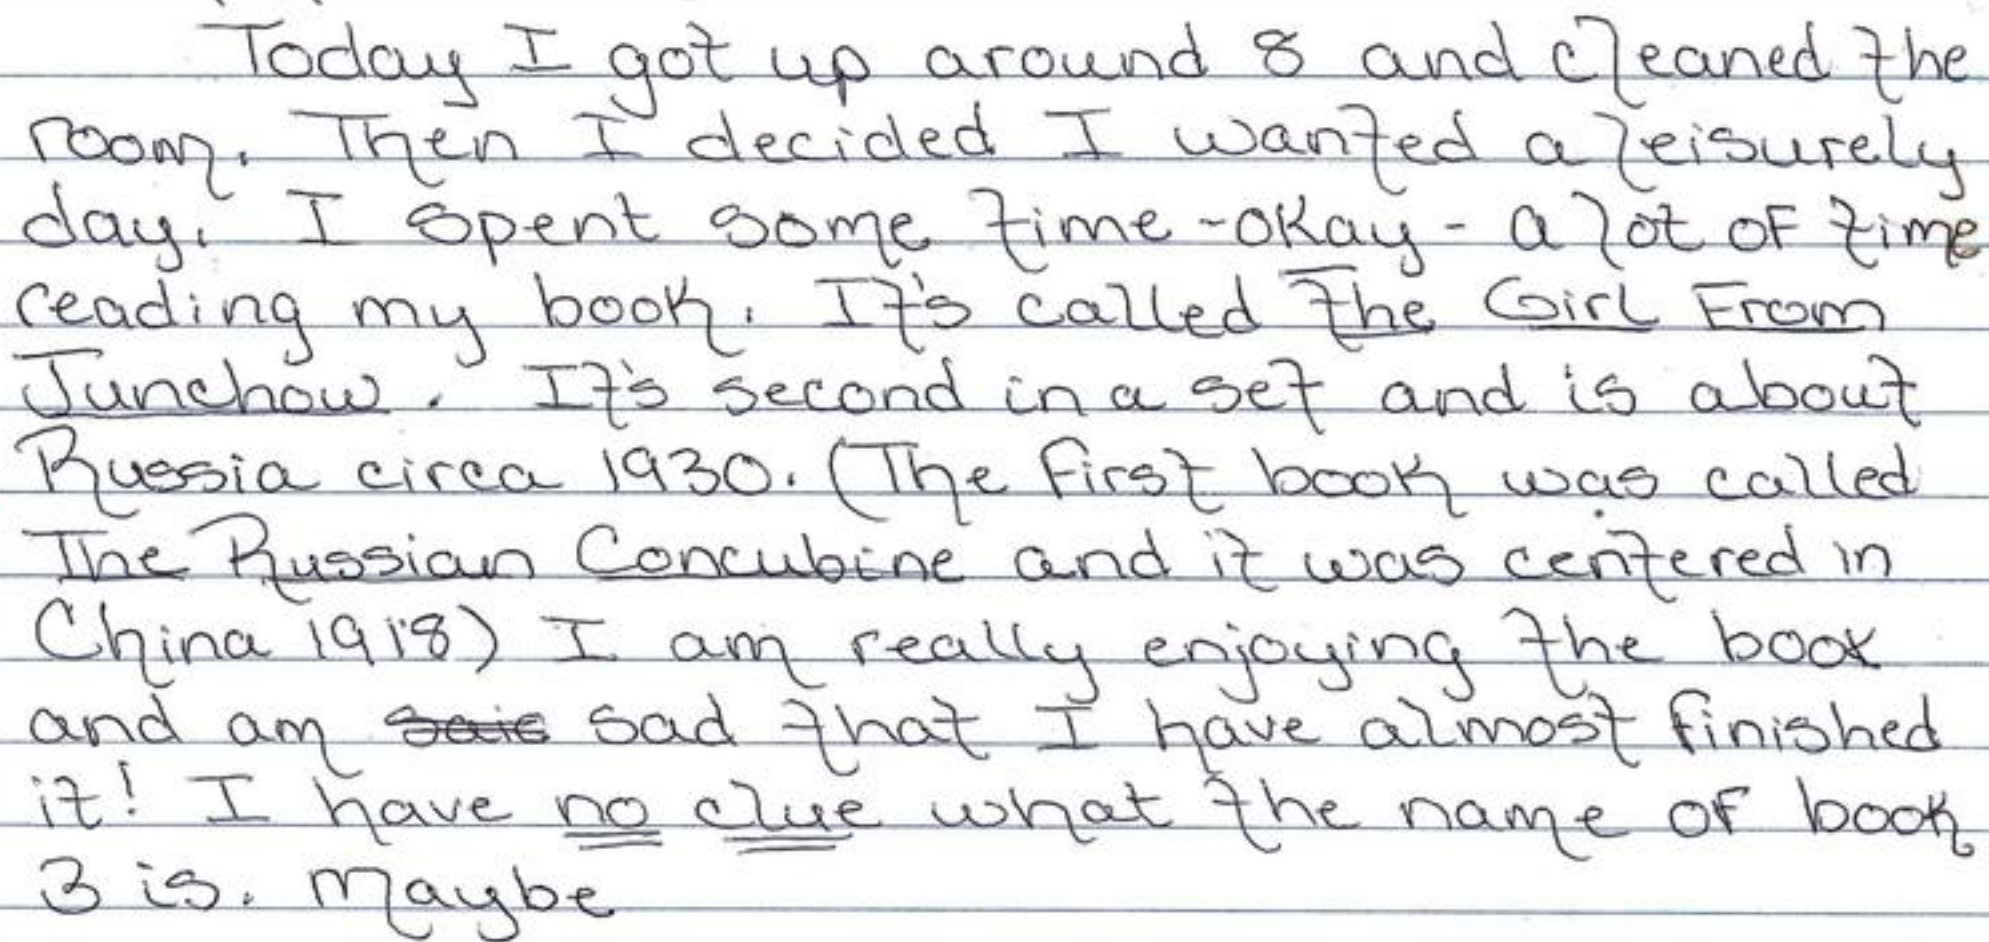 Today I got up around 8 and cleaned the
room. Then I decided I wanted a leisurely
day. I spent some time - okay - a lot of time
reading my book. It's called The Girl From
Junchow. It's second in a set and is about
Russia circa 1930. (The first book was called
The Russian Concubine and it was centered in
China 1918) I am really enjoying the book
and am sad that I have almost finished
it! I have no clue what the name of book
3 is. Maybe